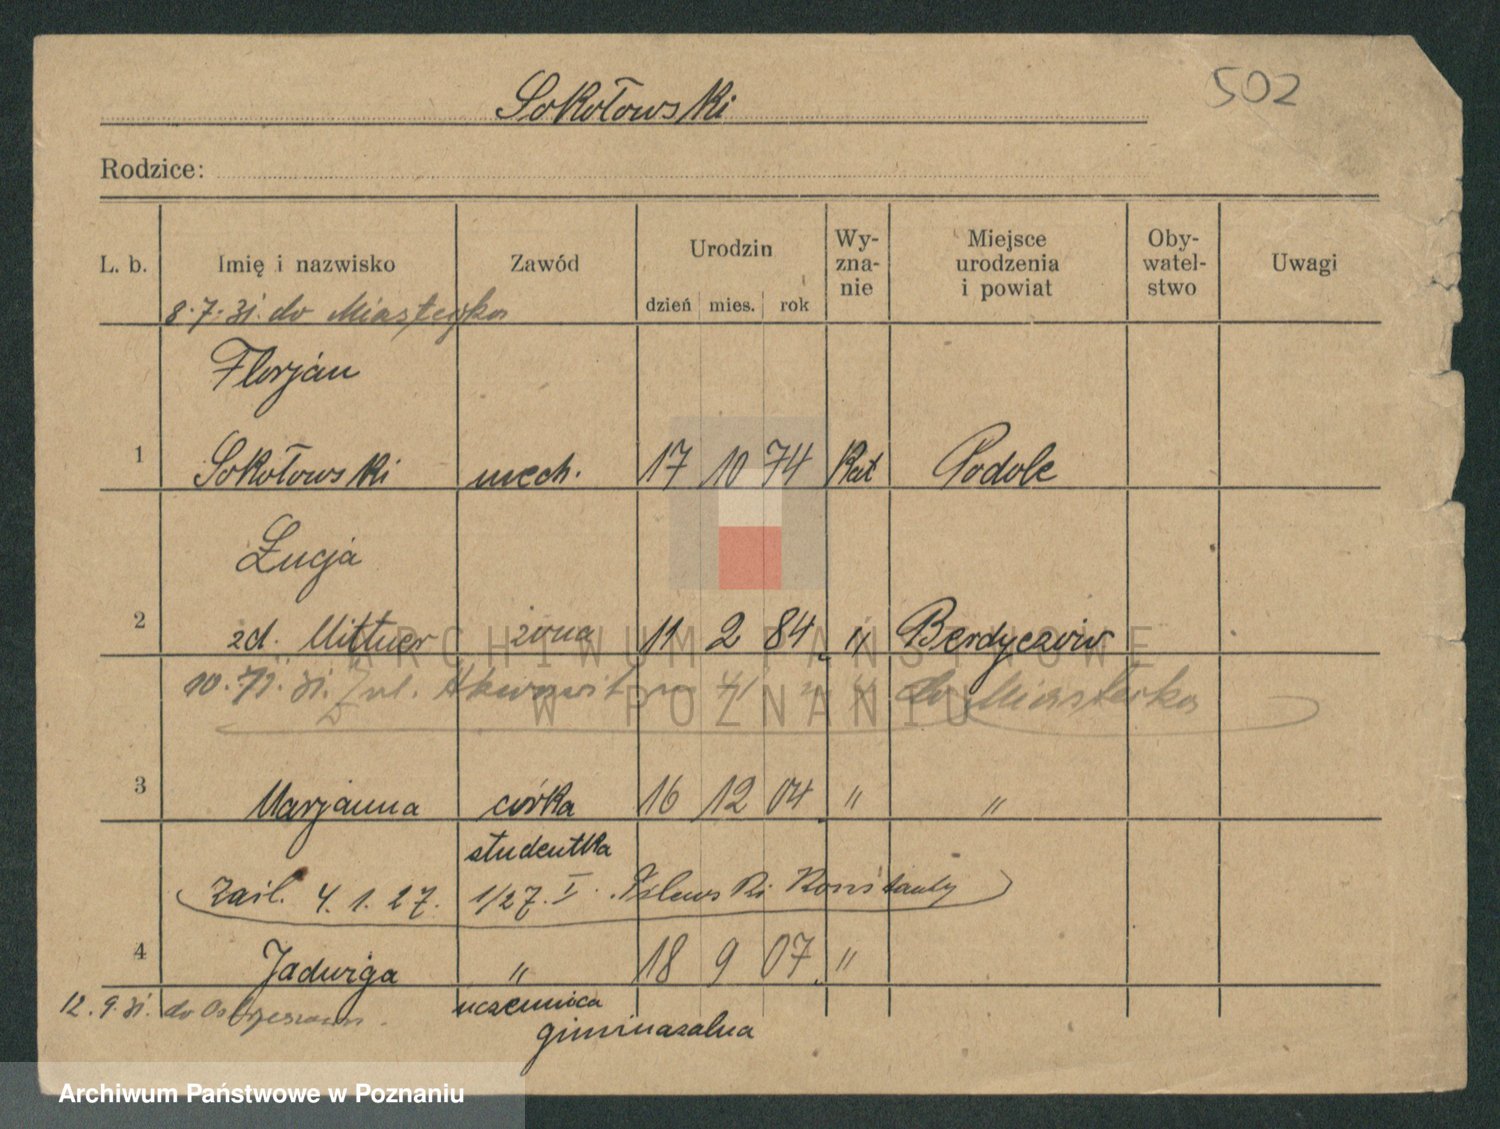 502
Sokołowski
Rodzice:
L. b. Imię i nazwisko Zawód Urodzin dzień mies. rok Wy-zna-nie Miejsce urodzenia i powiat Oby-watel-stwo Uwagi
8.7.31. do Miasteczka
Florjan
1 Sokołowski mech. 17 10 74 Kat Podole
Łucja
2 zd. Mittner żona 11 2 84 " Berdyczów
ARCHIWUM PAŃSTWOWE
10. 31. do Miasteczka
W POZNANIU
3 Marjanna córka 16 12 04 " "
studentka
Zaśl. 4.1.27. 1/27. I. Konstanty
4 Jadwiga " 18 9 07 "
12.9.31. do Ostrzeszowa. uczennica
gimnazalna
Archiwum Państwowe w Poznaniu